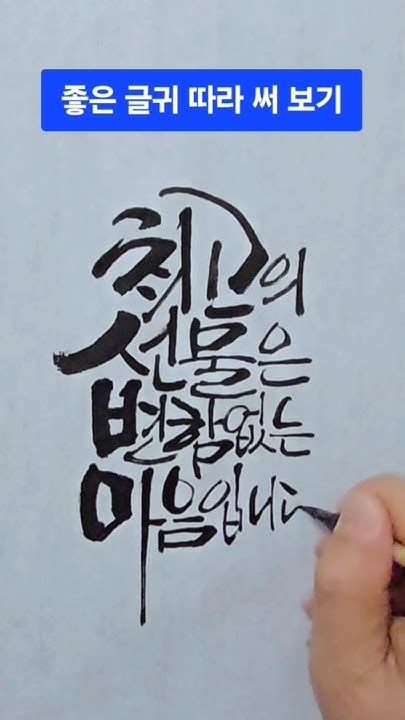 좋은 글귀 따라 써 보기
최고의
선물은
변함없는
마음입니ㄷ